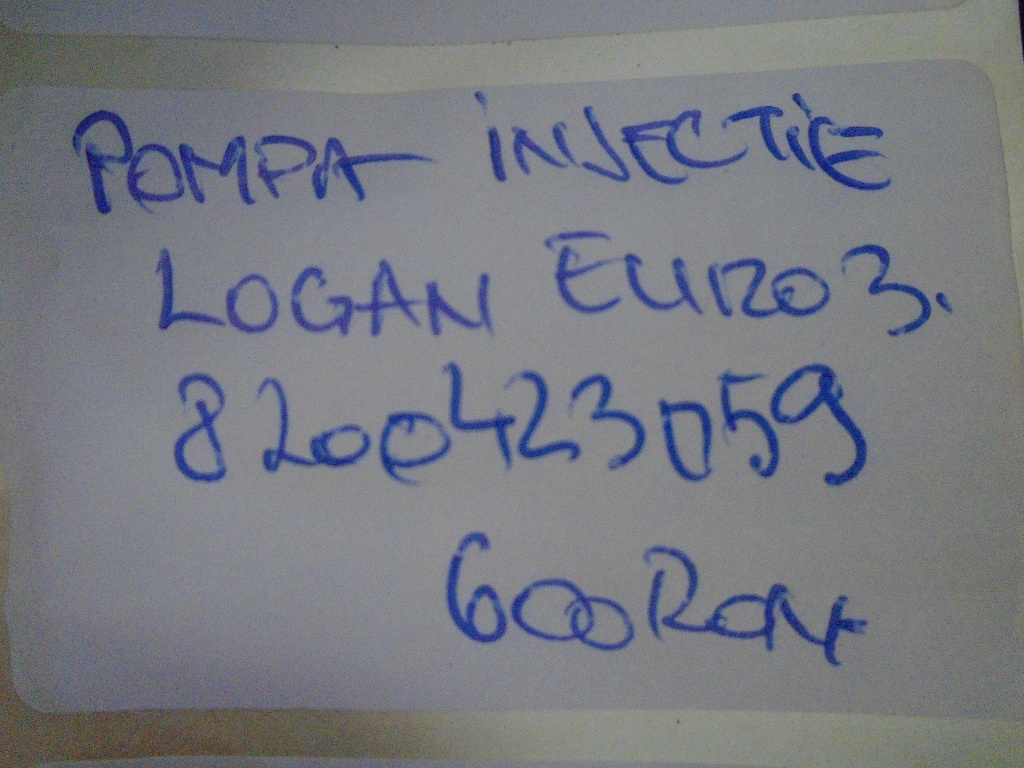 POMPA INJECTIE
LOGAN EURO 3.
8200423059
600 RON